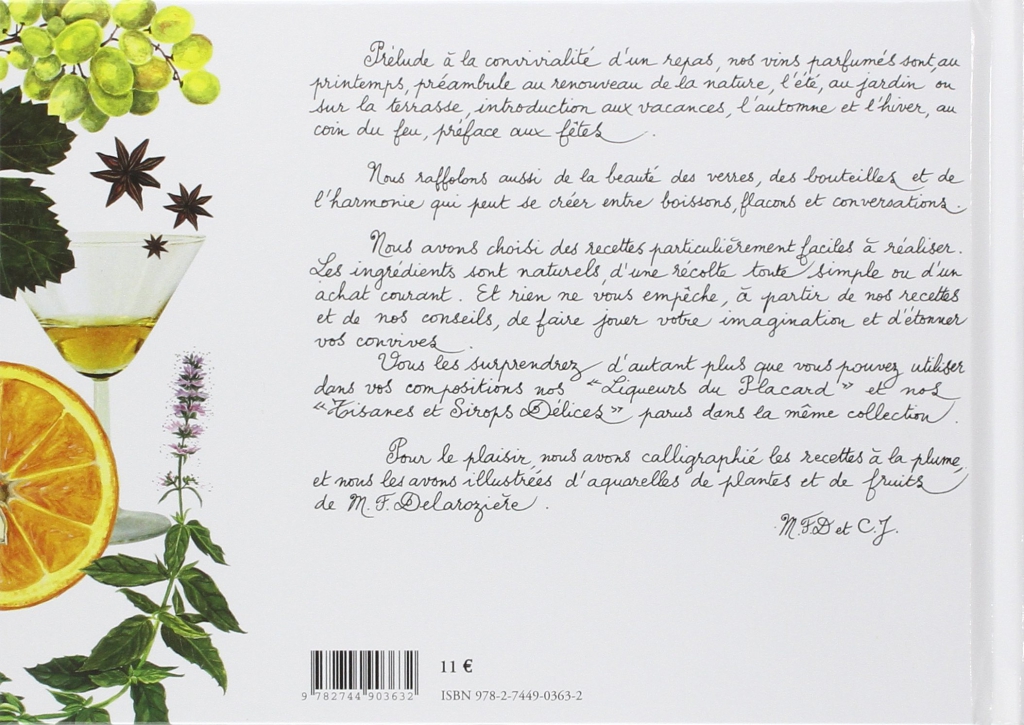 Prélude à la convivialité d'un repas, nos vins parfumés sont, au
printemps, préambule au renouveau de la nature, l'été, au jardin ou
sur la terrasse, introduction aux vacances, l'automne et l'hiver, au
coin du feu, préface aux fêtes.
Nous raffolons aussi de la beauté des verres, des bouteilles et de
l'harmonie qui peut se créer entre boissons, flacons et conversations.
Nous avons choisi des recettes particulièrement faciles à réaliser.
Les ingrédients sont naturels, d'une récolte toute simple ou d'un
achat courant. Et rien ne vous empêche, à partir de nos recettes
et de nos conseils, de faire jouer votre imagination et d'étonner
vos convives.
Vous les surprendrez d'autant plus que vous pouvez utiliser
dans vos compositions nos "Liqueurs du Placard" et nos
"Tisanes et Sirops Délices" parus dans la même collection.
Pour le plaisir, nous avons calligraphié les recettes à la plume,
et nous les avons illustrées d'aquarelles de plantes et de fruits
de M. F. Delarozière.
M.F.D et C.J.
11 €
9 782744 903632
ISBN 978-2-7449-0363-2